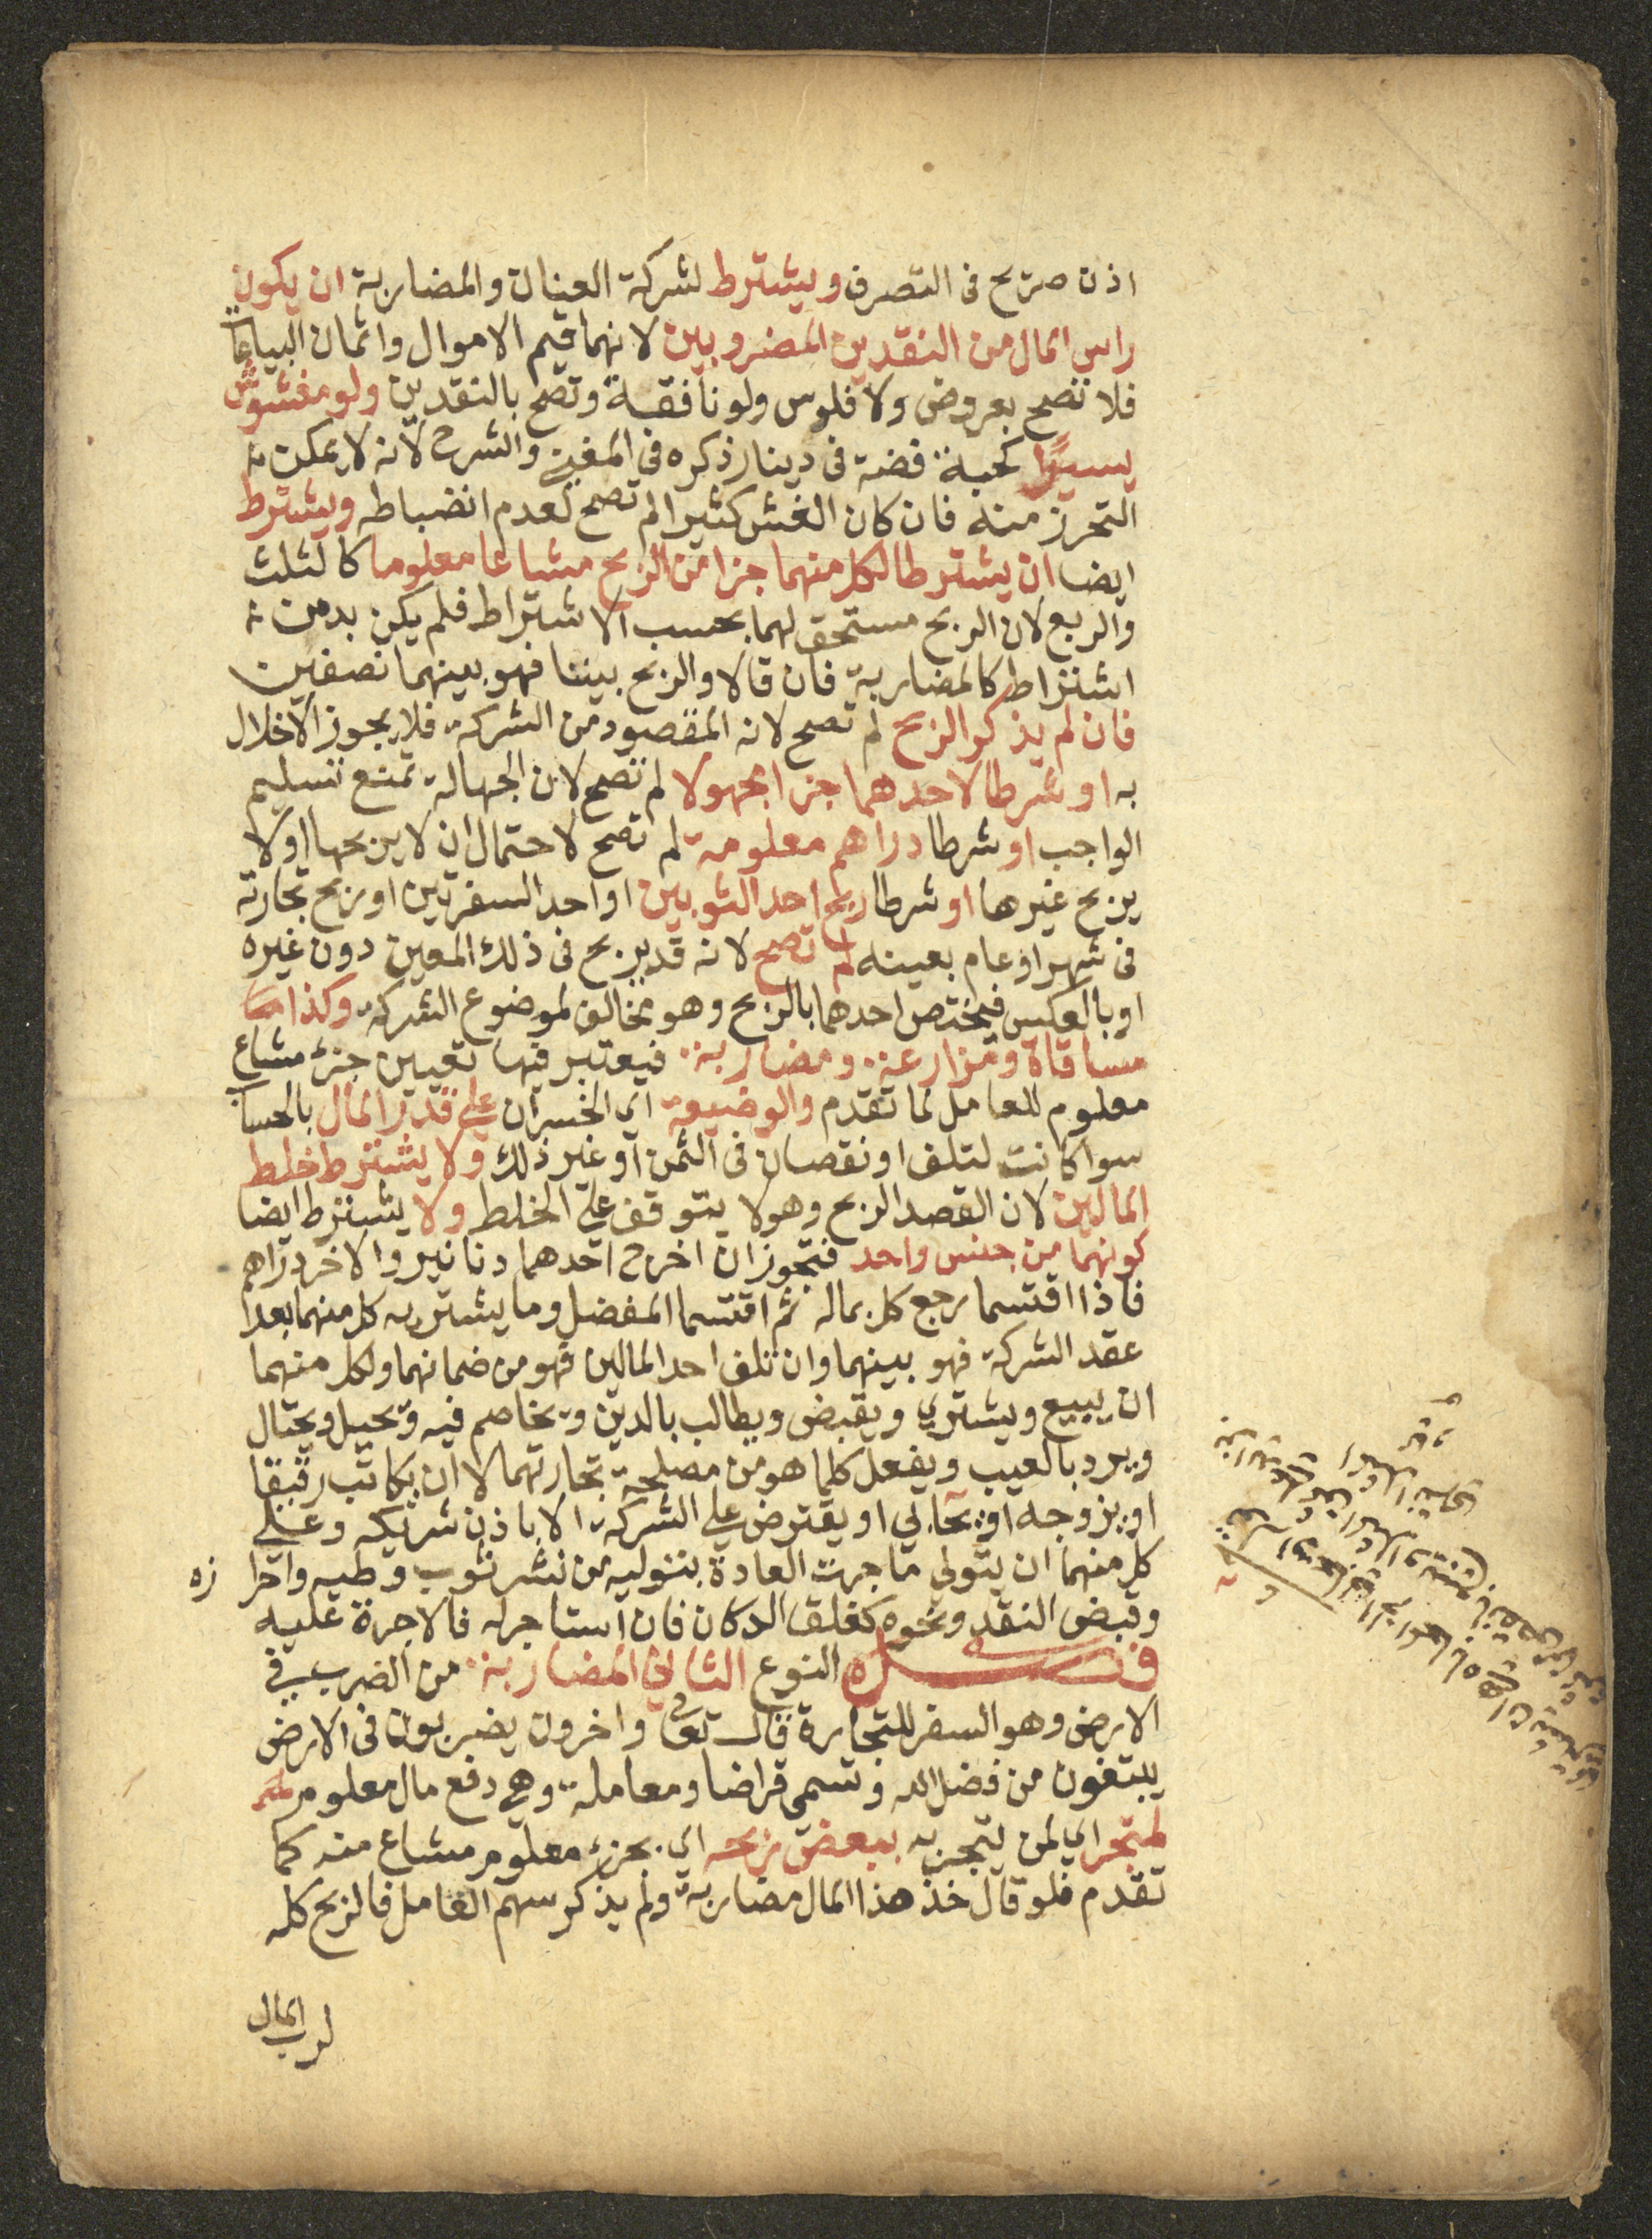 اذن صريح فى التصرف ويشترط لشركة العنان والمضاربة ان يكون
راس المال من النقدين المضروبين لانهما قيم الاموال واثمان البياعات
فلا تصح بعروض ولا فلوس ولو نافقة وتصح بالنقدين ولو مغشوشين
يسيرا كحبة فضة فى دينار ذكره فى المغني والشرح لانه لا يمكن
التحرز منه فان كان الغش كثيرا لم تصح لعدم انضباطه ويشترط
ايضا ان يشترطا لكل منهما جزا من الربح مشاعا معلوما كالثلث
والربع لان الربح مستحق لهما بحسب الاشتراط فلم يكن بد من
اشتراطه كالمضاربة فان قالا والربح بيننا فهو بينهما نصفين
فان لم يذكر الربح لم تصح لانه المقصود من الشركة فلا يجوز الاخلال
به او شرطا لاحدهما جزا مجهولا لم تصح لان الجهالة تمنع تسليم
الواجب او شرطا دراهم معلومة لم تصح لاحتمال ان لا يربحها او لا
يربح غيرها او شرطا ربح احد الثوبين او احد السفرتين او ربح تجارته
فى شهر او عام بعينه لم تصح لانه قد يربح فى ذلك المعين دون غيره
او بالعكس فيختص احدهما بالربح وهو مخالف لموضوع الشركة وكذا
مساقاة ومزارعة ومضاربة فيعتبر فيها تعيين جزء مشاع
معلوم للعامل لما تقدم والوضيعة اي الخسران على قدر المال بالحساب
سوا كانت لتلف او نقصان فى الثمن او غير ذلك ولا يشترط خلط
المالين لان القصد الربح وهو لا يتوقف على الخلط ولا يشترط ايضا
كونهما من جنس واحد فتجوز ان اخرج احدهما دنانير والاخر دراهم
فاذا اقتسما رجع كل بماله ثم اقتسما المفضل وما يشتريه كل منهما بعد
عقد الشركة فهو بينهما وان تلف احد المالين فهو من ضمانهما ولكل منهما
ان يبيع ويشتري ويقبض ويطالب بالدين ويخاصم فيه ويحيل ويحتال
ويرد بالعيب ويفعل كلما هو من مصلحة تجارتهما لا ان يكاتب رقيقا
او يزوجه او يحابي او يقترض على الشركة الا باذن شريكه وعلى
كل منهما ان يتولي ما جرت العادة بتوليه من نشر ثوب وطيه واحرازه
وقبض النقد ونحوه كغلق الدكان فان استاجر له فالاجرة عليه
فصل النوع الثاني المضاربة من الضرب في
الارض وهو السفر للتجارة قال تعالى واخرون يضربون فى الارض
يبتغون من فضل الله وتسمي قراضا ومعاملة وهي دفع مال معلوم
لمتجر اي لمن يتجر به ببعض ربحه اي بجزء معلوم مشاع منه كما
تقدم فلو قال خذ هذا المال مضاربة ولم يذكر سهم العامل فالربح كله
لرب المال